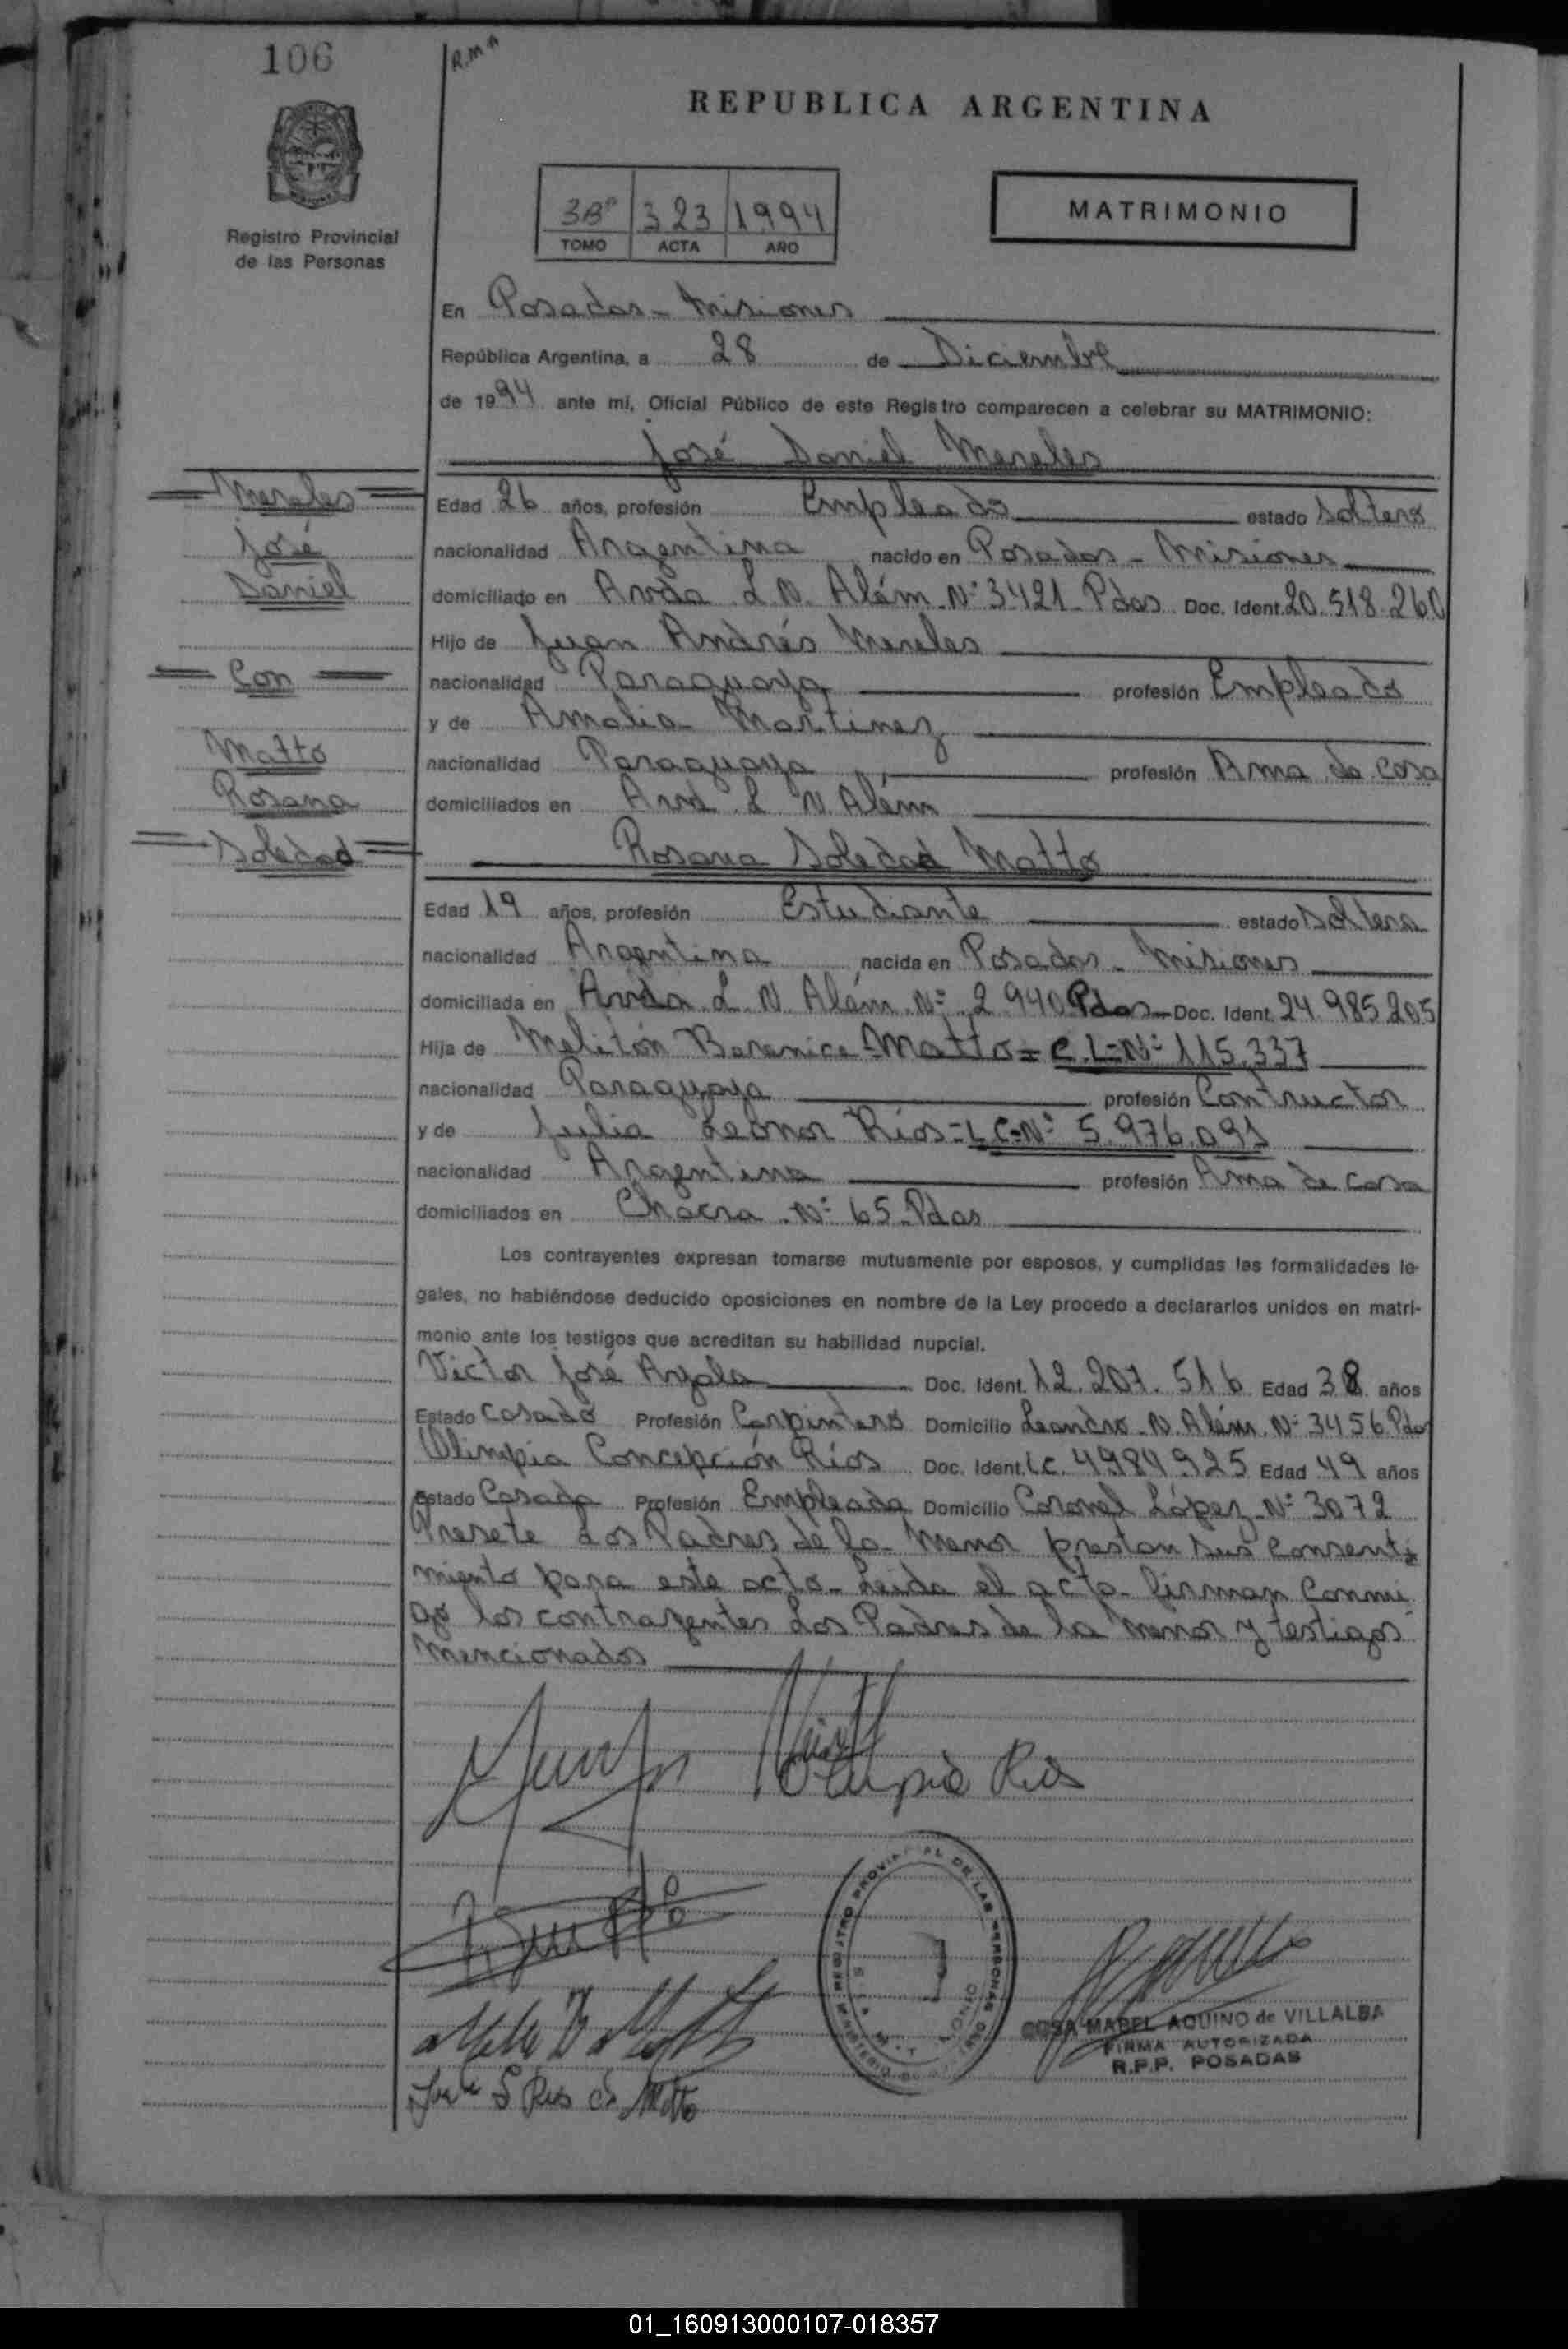 106
R.M.A
REPUBLICA ARGENTINA
3Bº 323 1994
TOMO ACTA AÑO
MATRIMONIO
Registro Provincial
de las Personas
En Posadas - Misiones
República Argentina, a 28 de Diciembre
de 1994 ante mí, Oficial Público de este Registro comparecen a celebrar su MATRIMONIO:
José Daniel Mereles
Mereles
José
Daniel
Con
Matto
Rosana
Soledad
Edad 26 años, profesión Empleado estado soltero
nacionalidad Argentina nacido en Posadas - Misiones
domiciliado en Avda L.N. Além Nº 3421 - Pdas Doc. Ident. 20.518.260
Hijo de Juan Andrés Mereles
nacionalidad Paraguaya profesión Empleado
y de Amalia Martinez
nacionalidad Paraguaya profesión Ama de casa
domiciliados en Avd. L N. Além
Rosana Soledad Matto
Edad 19 años, profesión Estudiante estado soltera
nacionalidad Argentina nacida en Posadas - Misiones
domiciliada en Avda L. N. Além Nº 2940 Pdas - Doc. Ident. 24.985.205
Hija de Melitón Berenice Matto = C.I. = Nº 115.337
nacionalidad Paraguaya profesión Contructor
y de Julia Leonor Ríos = L.C = Nº 5.976.091
nacionalidad Argentina profesión Ama de casa
domiciliados en Chacra Nº 65 - Pdas
Los contrayentes expresan tomarse mutuamente por esposos, y cumplidas las formalidades le-
gales, no habiéndose deducido oposiciones en nombre de la Ley procedo a declararlos unidos en matri-
monio ante los testigos que acreditan su habilidad nupcial.
Victor José Ayala Doc. Ident. 12.207.516 Edad 38 años
Estado Casado Profesión Carpintero Domicilio Leandro N. Além Nº 3456 Pdas
Olimpia Concepción Ríos Doc. Ident. L.C. 4984925 Edad 49 años
Estado Casada Profesión Empleada Domicilio Coronel López Nº 3072
Presete Los Padres de la Menor prestan sus consenti
miento para este acto - Leida el acta - firman conmi
go los contrayentes Los Padres de la Menor y testigos
Mencionados
Olimpia Rios
REGISTRO PROVINCIAL DE LAS PERSONAS
ROSA MABEL AQUINO de VILLALBA
FIRMA AUTORIZADA
R.P.P. POSADAS
01_160913000107-018357